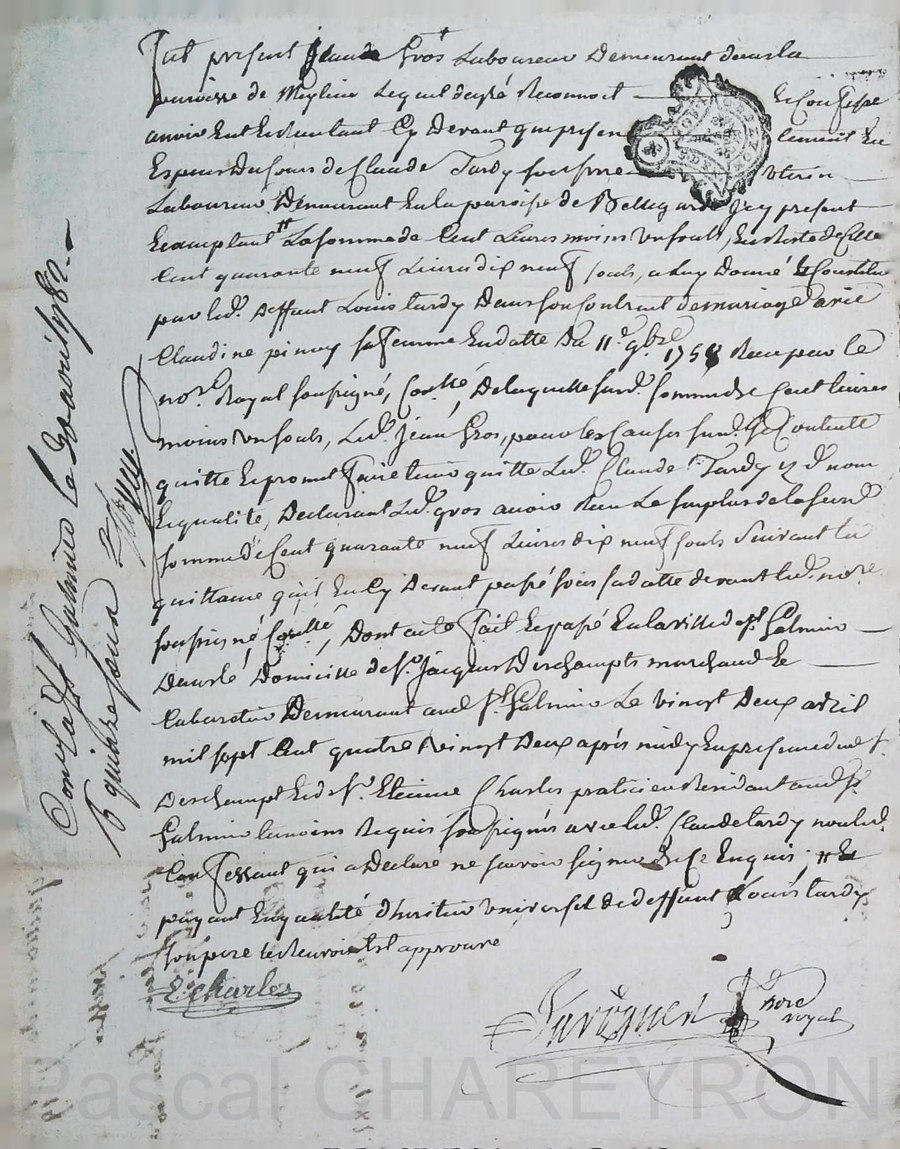 Fut present Claude Gros Laboureur Demeurant dans la
paroisse de Meylieu Lequel de gré Reconnoit Et Confesse
avoir Eut Et Recu tant Cy Devant que presentement En
Especes Du Cours de Claude Tardy son frere Uterin
Laboureur Demeurant En la paroisse de Bellegarde Icy present
Et acceptant # La somme de Cent Livres moins Un sols, En Reste de Celle
Cent quarante neuf Livres dix neuf sols, a Luy Donné & Constitué
par led. Deffunt Louis tardy Dans son Contrat de mariage avec
Claudine pinay sa femme En datte Du 11e 9bre 1758 Recu par le
nore. Royal soussigné, Con.llé, De laquelle susd. somme de Cent Livres
moins Un sols, Led. Jean Gros, pour les Causes susd. se Contente
quitte Et promet faire tenir quitte Led. Claude Tardy Es d. nom
Et qualité, Declarant Led. gros avoir Recu Le surplus de la susd.
somme de Cent quarante neuf Livres dix neuf sols Suivant la
quittance qu'il En Cy Devant passé sous sa datte devant led. nore.
soussigné, Con.llé, Dont acte Fait Et passé En la ville de St. Galmier
Dans le Domicille de Sr. Jacques Deschampts marchand Et
Cabaretier Demeurant aud. St. Galmier Le vingt Deux avril
mil sept Cent quatre Vingt Deux après midy En presence dud. s.
Deschampt Et de Sr. Etienne Charles praticien Residant aud. St.
Galmier temoins Requis soussignés avec led. Claude tardy non led.
Confessant qui a Declaré ne savoir signer De Ce Enquis; # Et
payant En qualité d'heritier Universel de deffunt Louis tardy
son pere le Renvoi Est approuvé
E. Charles
nore
royal
Con.lé a St Galmier le 22 avril 1782
R quinze sous
Pascal CHAREYRON